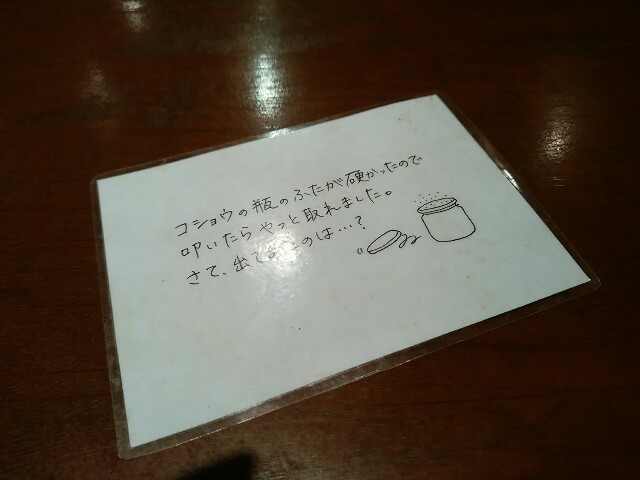 コショウの瓶のふたが硬かったので
叩いたらやっと取れました。
さて、出てきたのは…？